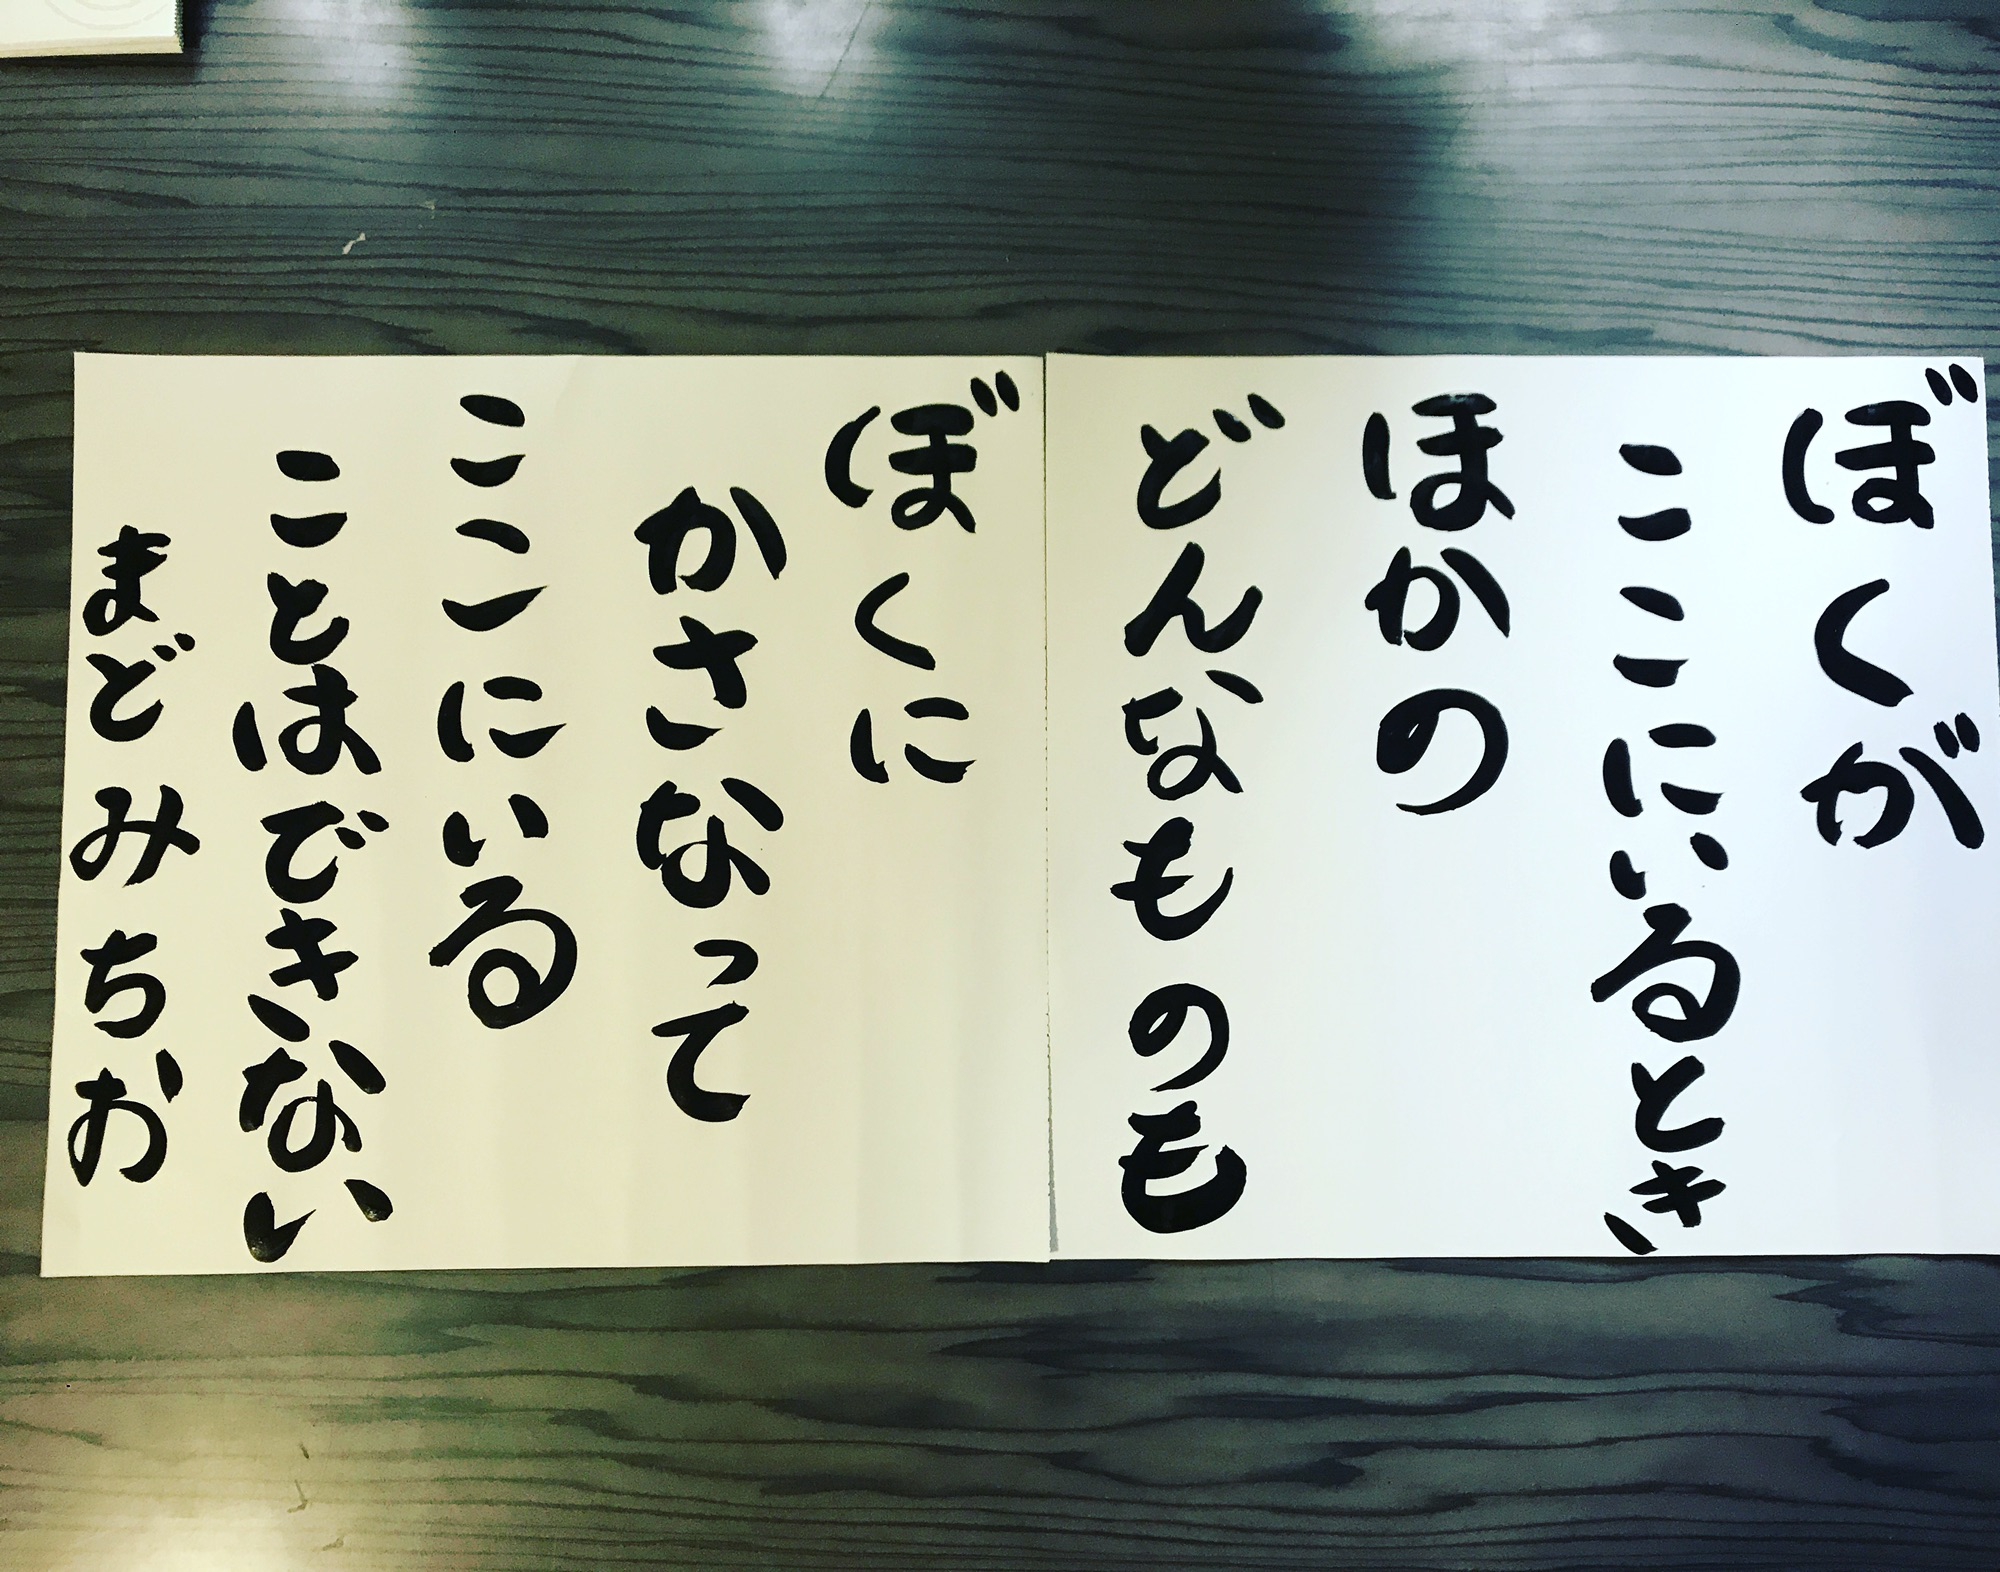 ぼくが
ここにいるとき
ほかの
どんなものも
ぼくに
かさなって
ここにいる
ことはできない
まどみちお